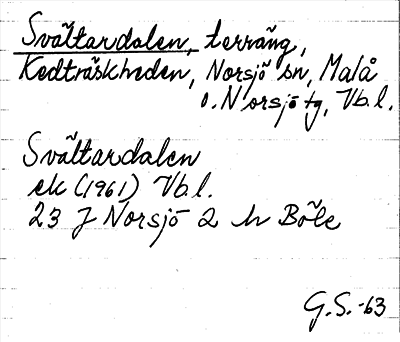 Svältardalen, terräng,
Kedträskheden, Norsjö sn, Malå
o. Norsjö tg, Vb.l.
Svältardalen
ek (1961) Vb.l.
23 J Norsjö 2 h Böle
G.S.-63